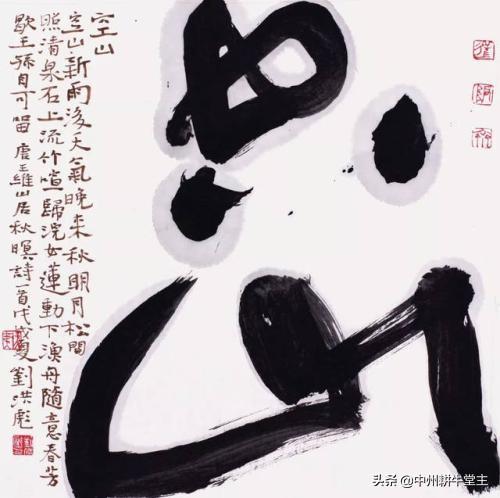 空山
空山
空山新雨後天氣晚来秋明月松間
照清泉石上流竹喧歸浣女蓮動下漁舟隨意春芳
歇王孫自可留 唐王維山居秋暝詩一首戊戌夏劉洪彪
头条 @中州耕牛堂主